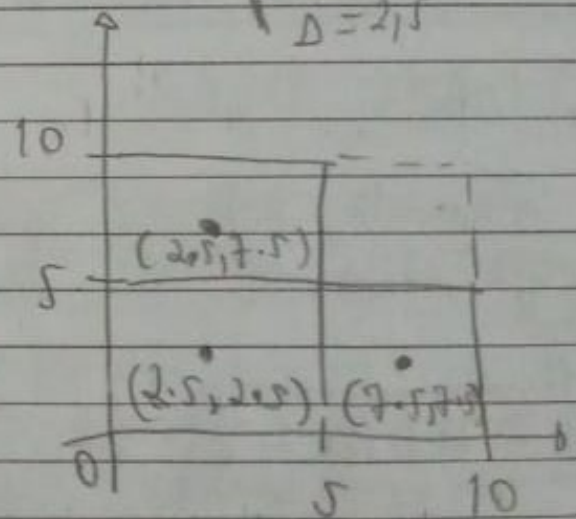 D = 2,5
10
(2.5, 7.5)
5
(2.5, 2.5) (7.5, 7.5)
0 5 10